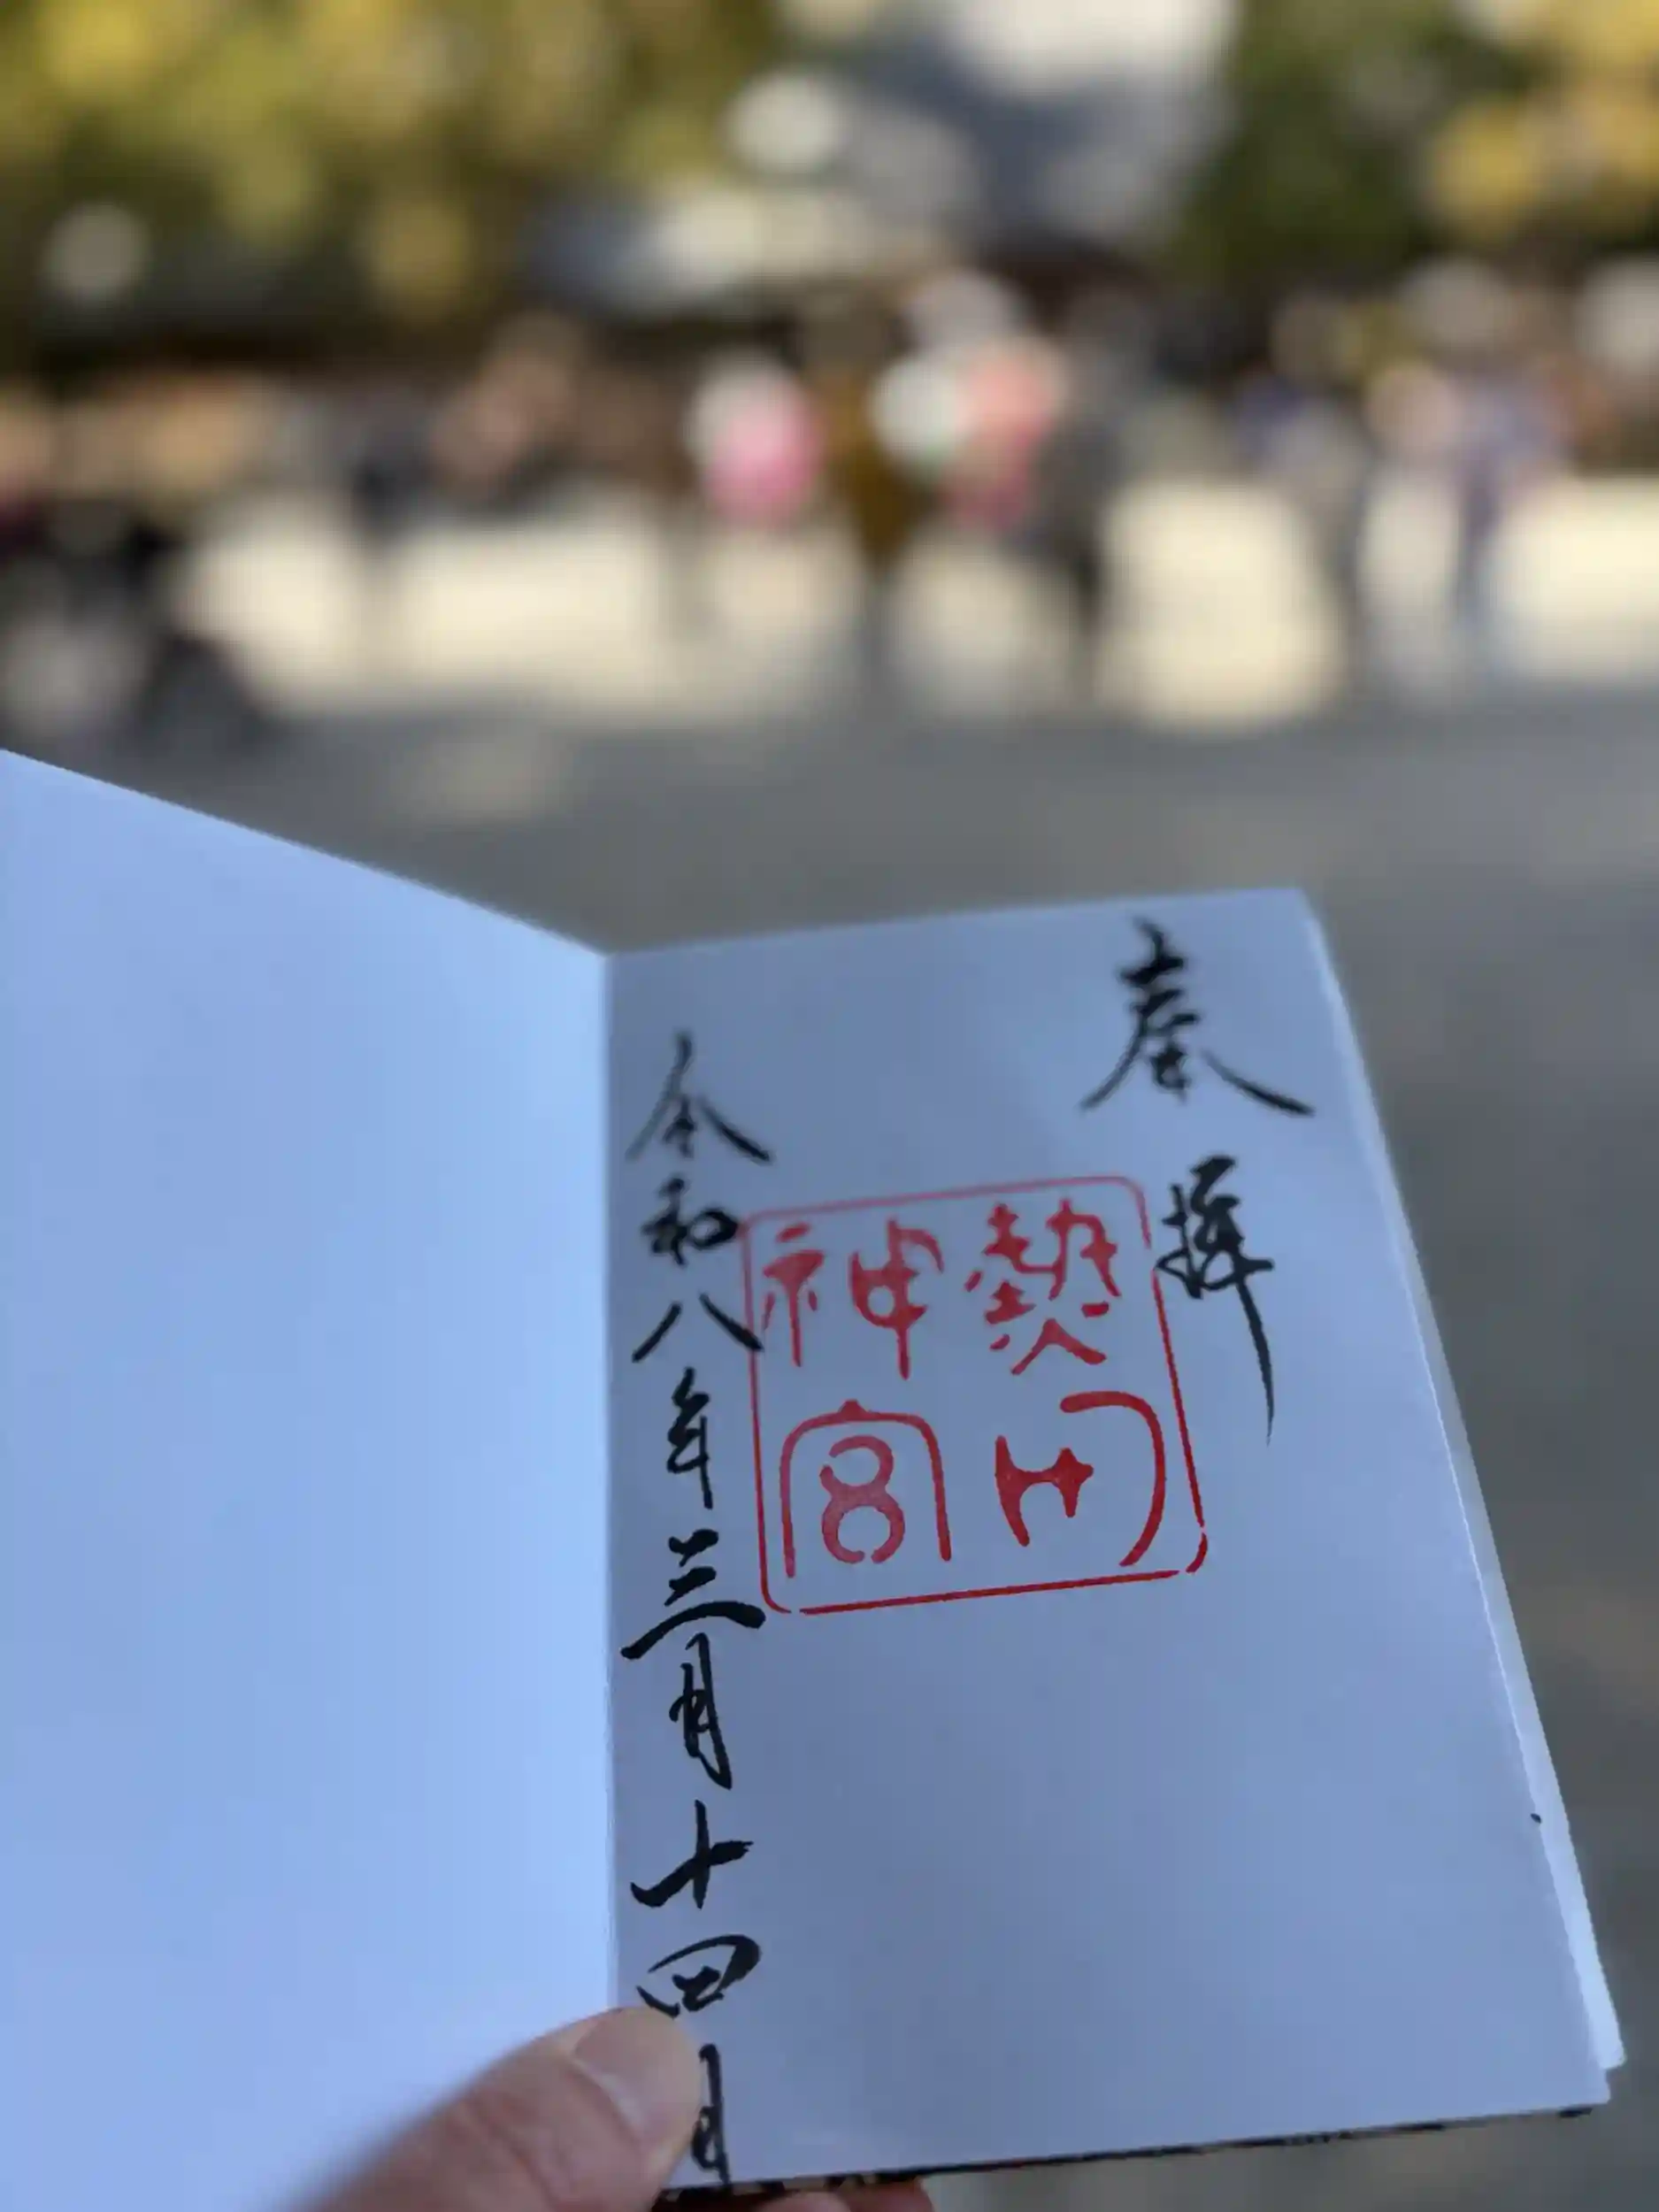 奉拝
熱田神宮
令和八年三月十四日